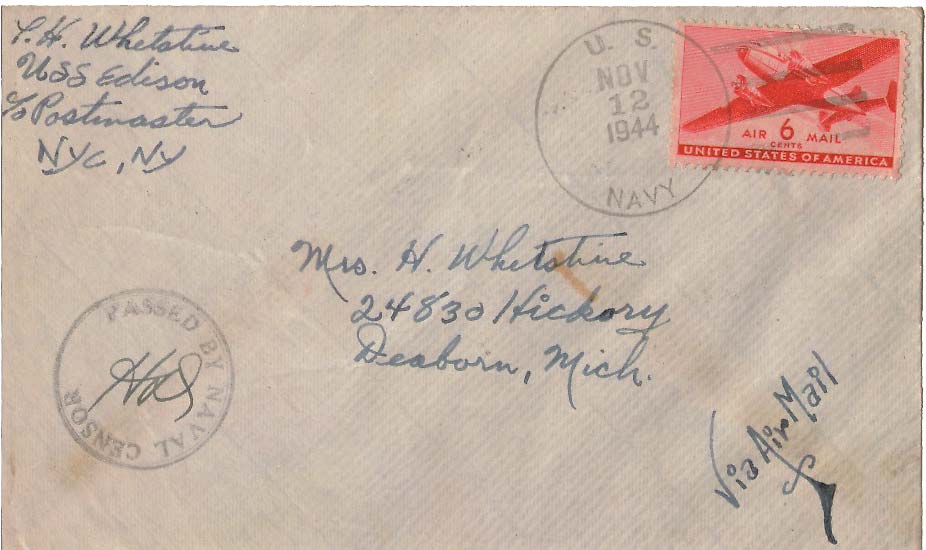 H. Whetstine
USS Edison
c/o Postmaster
NYC, NY
U. S.
NOV
12
1944
NAVY
AIR 6 MAIL
CENTS
UNITED STATES OF AMERICA
Mrs. H. Whetstine
24830 Hickory
Deaborn, Mich.
PASSED BY NAVAL CENSOR
Via Air Mail